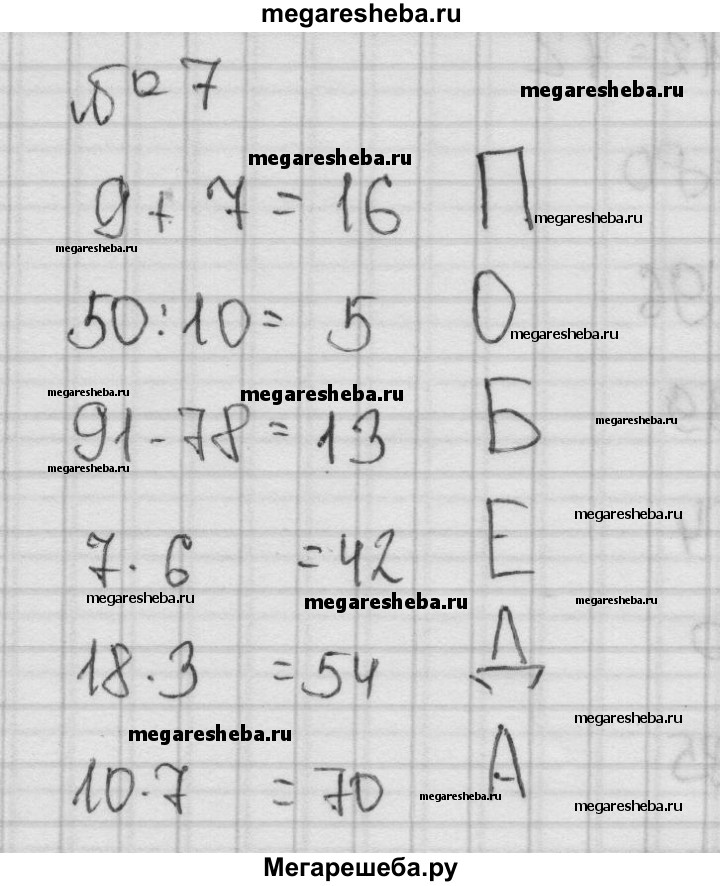 megaresheba.ru
№ 7
megaresheba.ru
megaresheba.ru
9 + 7 = 16 П
megaresheba.ru
megaresheba.ru
50 : 10 = 5 О
megaresheba.ru
megaresheba.ru
megaresheba.ru
91 - 78 = 13 Б
megaresheba.ru
megaresheba.ru
megaresheba.ru
7 · 6 = 42 Е
megaresheba.ru
megaresheba.ru
megaresheba.ru
18 · 3 = 54 Д
megaresheba.ru
megaresheba.ru
10 · 7 = 70 А
megaresheba.ru
megaresheba.ru
Мегарешеба.ру